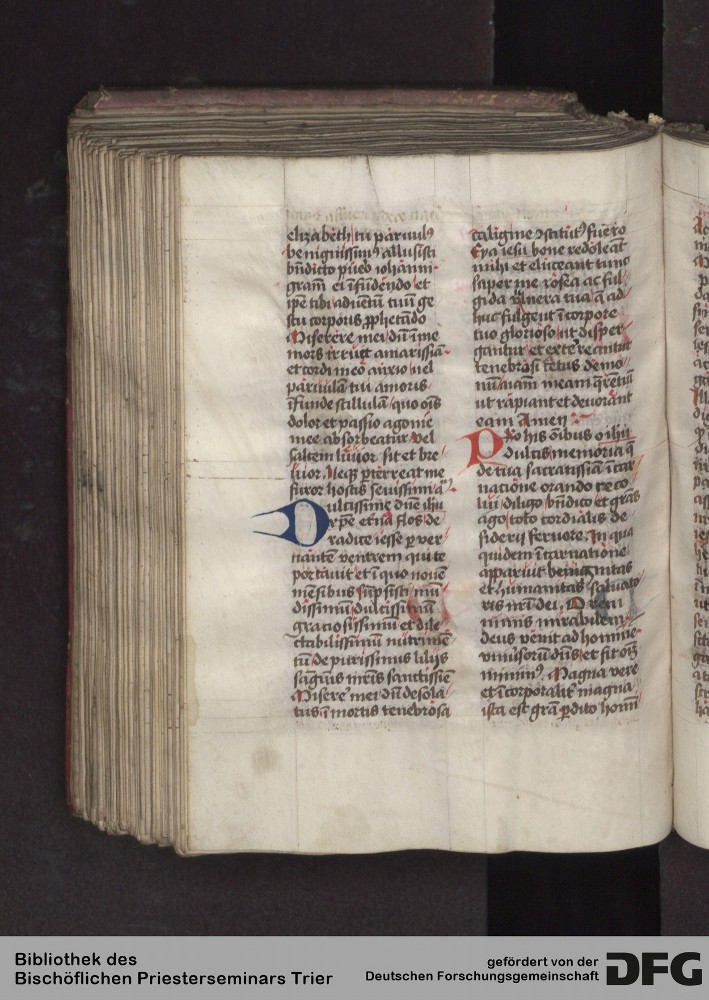 elizabeth tu paruulꝯ
benignissimꝯ allusisti
bn̄dicto pueō iohanni
gram̄ ei īfūdendo et
ip̄e tibi aduētū tuū ge
stu corporis ꝓphetādo
Miserere mei dum̄ ī me
mors irruit amarissīa
et cordi meo anxio uel
paruulā tui amoris
īfunde stillulā quo om̄s
dolor et passio agonie
mee absorbeatur vel
saltem leuior sit et bre
uior Neqꝫ ꝑterreat me
furor hostis seuissimi a
Dulcissime dn̄e ihū
xp̄e et̄na flos de
radice iesse ꝑ ver
nantē ventrem qui te
portauit et ī quo nouē
mēsibus sūpsisti mū
dissimū dulcissimū
graciosissimū et dile
ctabilissimū nutrimē
tū de purissimis lilijs
sāguīs mr̄is sanctissīe
Miserē mei dū desola
tus ī mortis tenebrosa
caligine ꝯstitutꝯ fuero
Eya iesu bone redoleāt
mihi et eluceant tunc
super me rosea ac ful
gida vl̄nera tua q̄ ad
huc fulgent ī corpore
tuo glorioso ut disper
gantur et exterreantur
tenebrosi fetus demo
nū aīam meam q̄rētiū
ut rapiant et deuorant
eam Amen
Pro his om̄ibus o ihū
dulcis memoria q̄
de tua sacratissīa īcar
nacione orando reco
lui diligo bn̄dico et grās
ago toto cordialis de
siderij feruore In qua
quidem īcarnatione
apparuit benignitas
et humanitas saluato
ris nr̄i dei O rem
nimis mirabilem
deus venit ad homine
vniūsorū dn̄s et fit om̄
minimꝯ Magna vere
et ī corporalit̄ magna
ista est grā ꝑdito homī
Bibliothek des
Bischöflichen Priesterseminars Trier
gefördert von der
Deutschen Forschungsgemeinschaft
DFG